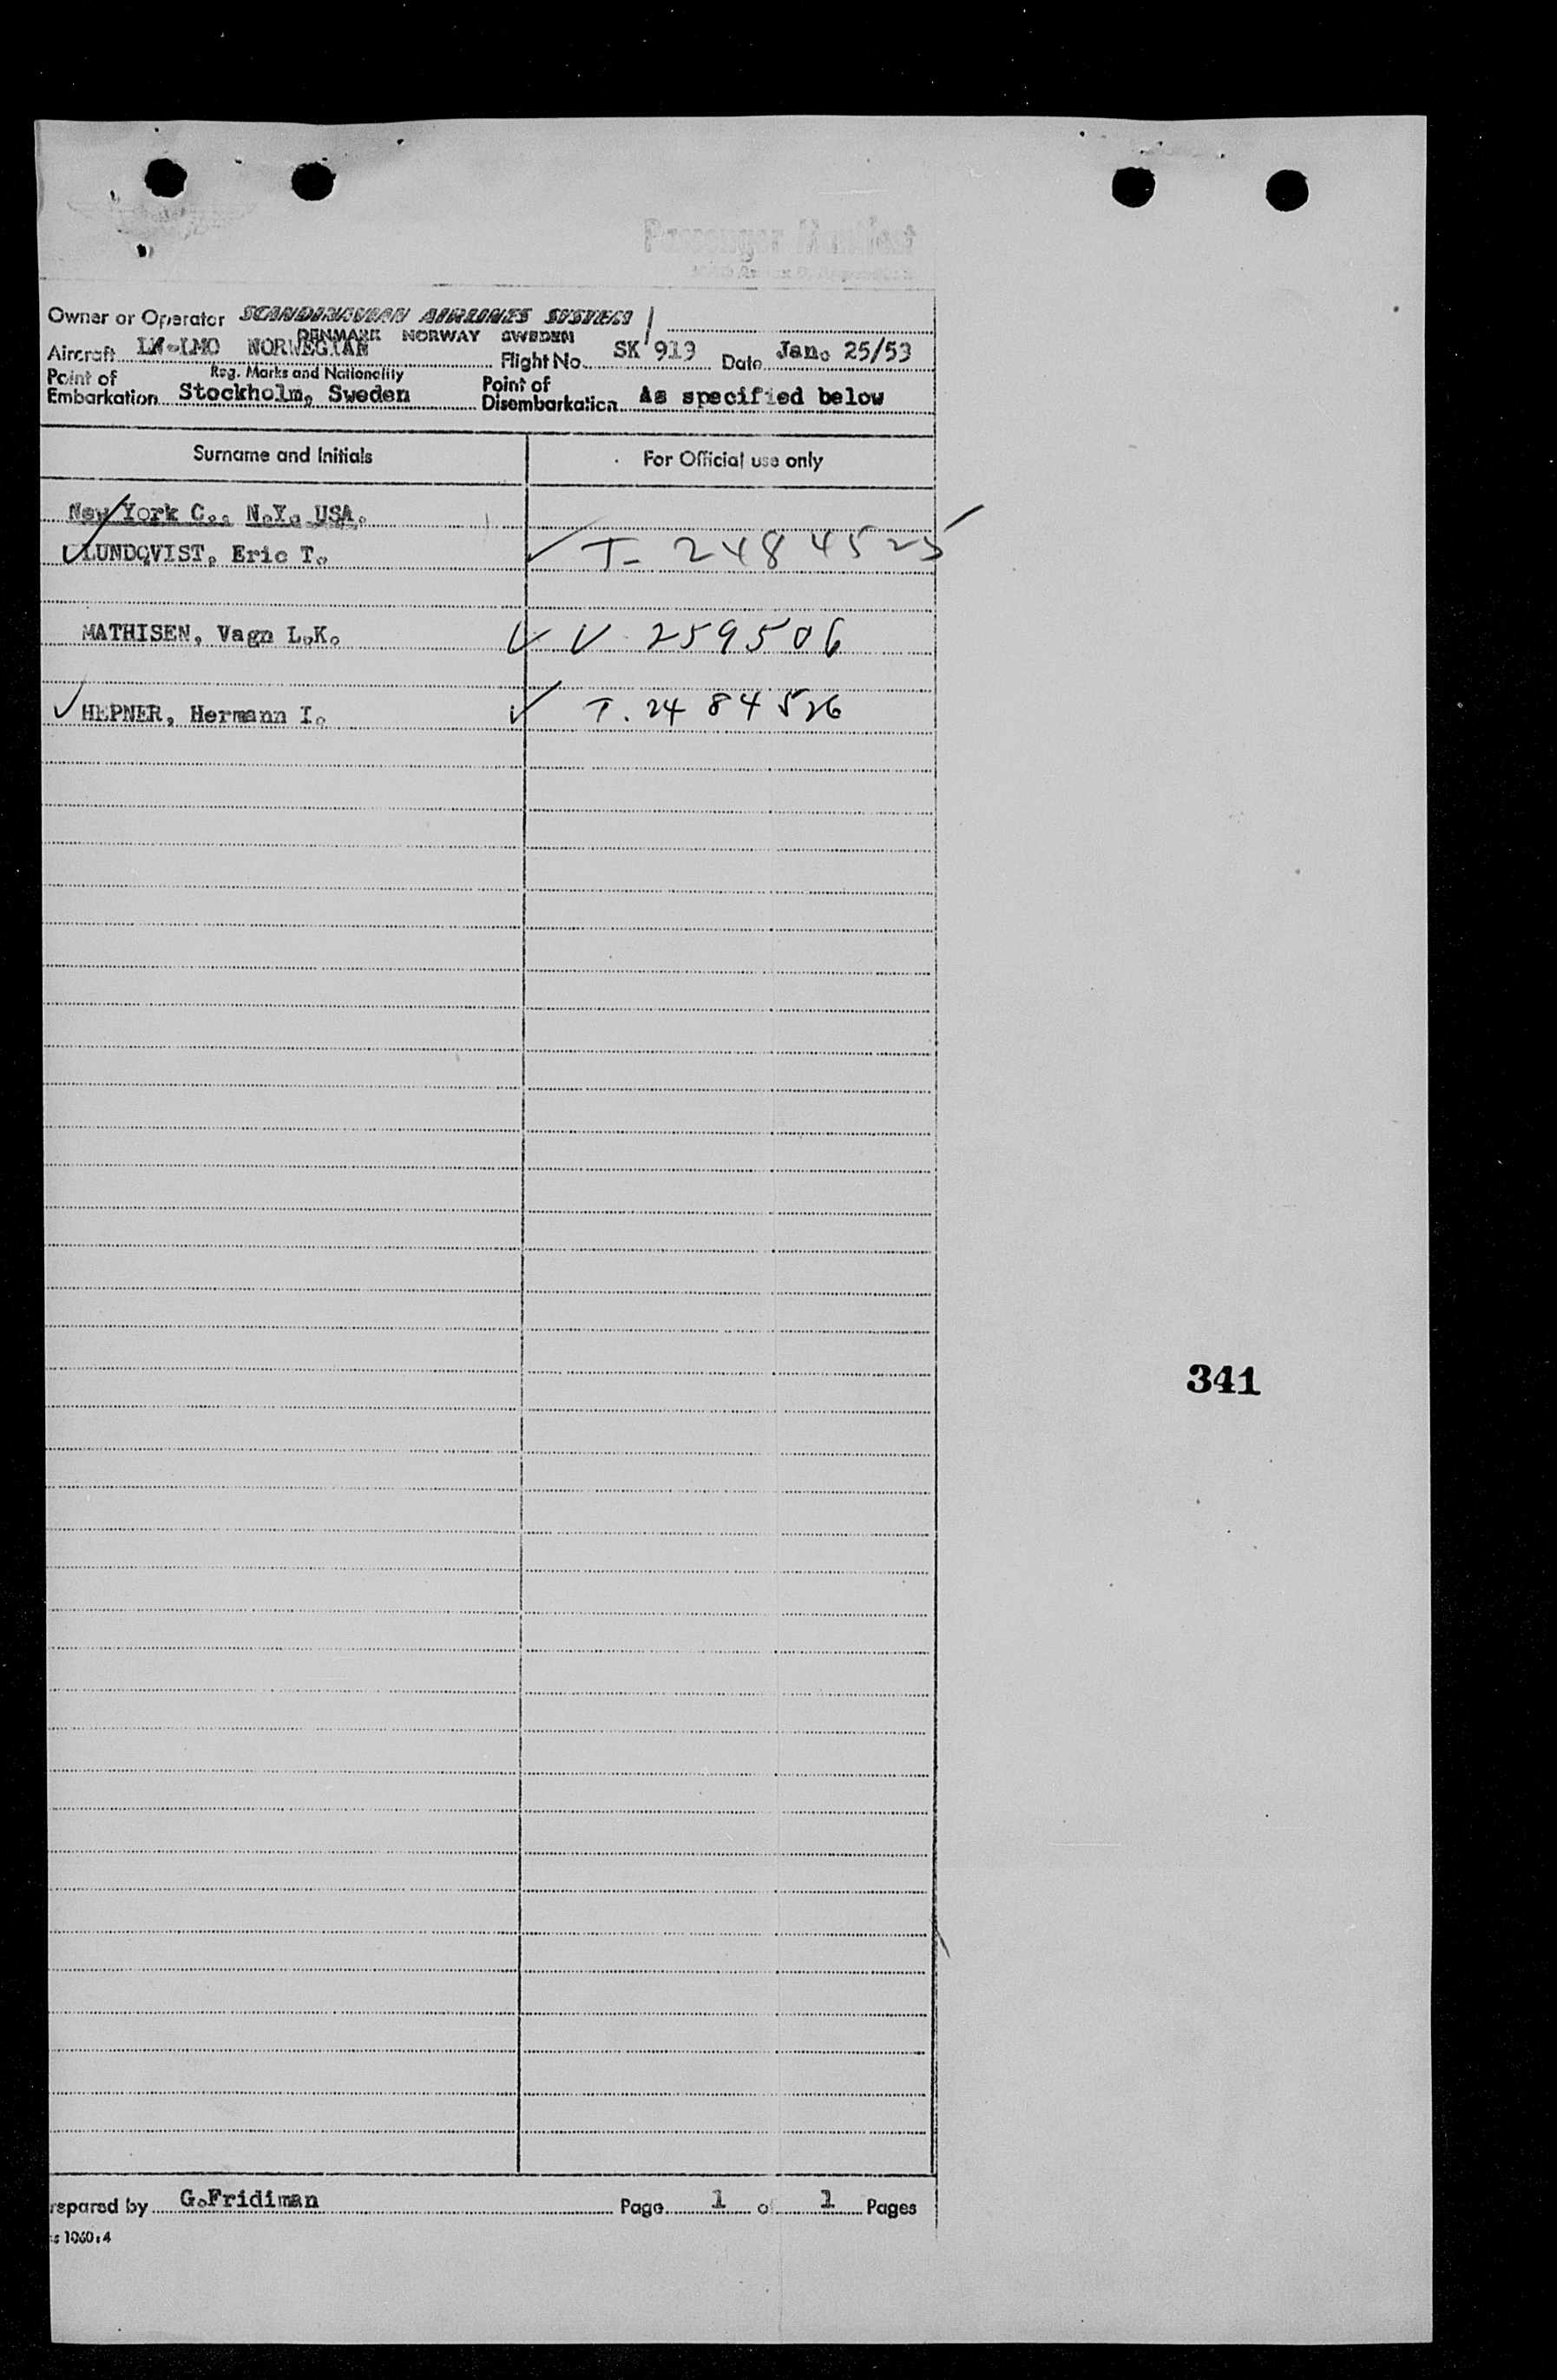 Passenger Manifest
Owner or Operator SCANDINAVIAN AIRLINES SYSTEM
DENMARK NORWAY SWEDEN
Aircraft LN-LMO NORWEGIAN Flight No. SK 913 Date Jan. 25/53
Reg. Marks and Nationality
Point of Embarkation Stockholm, Sweden Point of Disembarkation As specified below
Surname and Initials For Official use only
New York C., N.Y. USA.
LUNDQVIST, Eric T. T- 2484525
MATHISEN, Vagn L.K. V 259506
HEPNER, Hermann I. T. 2484526
341
repared by G.Fridiman Page 1 of 1 Pages
s 1060:4